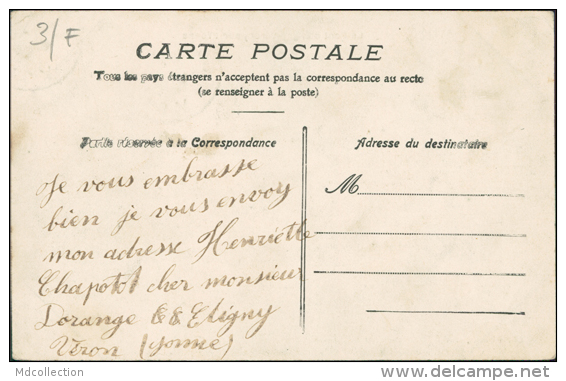 3/F
CARTE POSTALE
Tous les pays étrangers n'acceptent pas la correspondance au recto
(se renseigner à la poste)
Partie réservée à la Correspondance
Adresse du destinataire
M
Je vous embrasse
bien je vous envoy
mon adresse Henriette
Chapotot cher monsieur
Lorange Etigny
Véron (yonne)
Mdcollection
www.delcampe.net